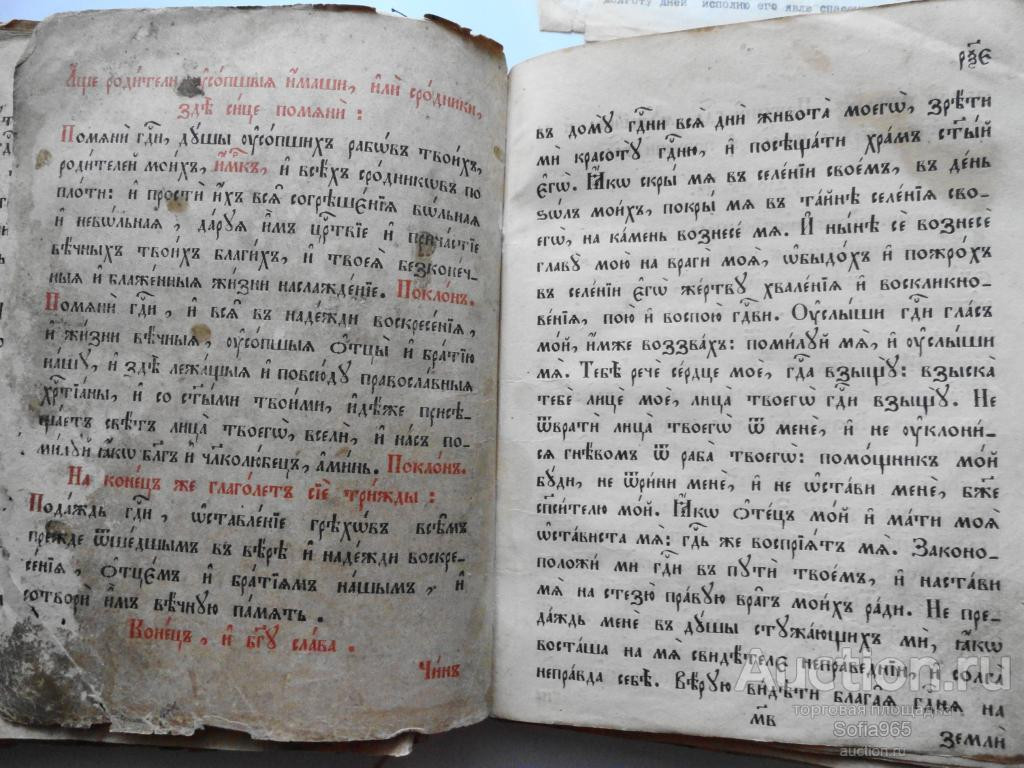 долготу дней исполню его явле
Аще родители оу҆со́пшыя и҆́маши, и҆лѝ сро́дники,
здѣ̀ си́це помѧнѝ :
Помѧнѝ гдⷭ҇и, дꙋ́шы оу҆со́пшихъ рабѡ́въ твои́хъ,
роди́телей мои́хъ, и҆́м҃къ, и҆ всѣ́хъ сро́дникѡвъ по
пло́ти: и҆ простѝ и҆̀хъ всѧ̑ согрѣшє́нїѧ вѡ́льнаѧ
и҆ невѡ́льнаѧ , да́рꙋѧ и҆̀мъ црⷭ҇твїе и҆ прича́стїе
вѣ́чныхъ твои́хъ благи́хъ, и҆ твоеѧ̀ безконе́ч-
ныѧ и҆ блаже́нныѧ жи́зни наслажде́нїе. Покло́нъ.
Помѧнѝ гдⷭ҇и , и҆ всѧ̑ въ наде́жди воскресе́нїѧ,
и҆ жи́зни вѣ́чныѧ, оу҆со́пшыѧ ѻ҆тцы̀ и҆ бра́тїю
на́шꙋ, и҆ здѣ̀ лежа́щыѧ и҆ повсю́дꙋ правосла́вныѧ
хрⷭ҇тїа́ны, и҆ со ст҃ы́ми твои́ми, и҆дѣ́же присѣ-
ща́етъ свѣ́тъ лица̀ твоегѡ̀, вселѝ, и҆ на́съ по-
ми́лꙋй ꙗ҆́кѡ бл҃гъ и҆ чл҃колю́бецъ, а҆ми́нь. Покло́нъ.
На коне́цъ же глаго́летъ сїѐ три́жды :
Пода́ждь гдⷭ҇и, ѡ҆ставле́нїе грѣхѡ́въ всѣ́мъ
пре́жде ѿше́дшымъ въ вѣ́рѣ и҆ наде́жди воскре-
се́нїѧ, ѻ҆тцє́мъ и҆ бра́тїѧмъ на́шымъ , и҆
сотворѝ и҆̀мъ вѣ́чнꙋю па́мѧть .
Коне́цъ , и҆ бг҃ꙋ сла́ва .
Чи́нъ
въ домꙋ̀ гдⷭ҇ни всѧ̑ дни̑ живота̀ моегѡ̀, зрѣ́ти
мѝ красотꙋ̀ гдⷭ҇ню, и҆ посѣща́ти хра́мъ ст҃ы́й
є҆гѡ̀. Ꙗ҆́кѡ скры́ мѧ въ селе́нїи свое́мъ, въ де́нь
ѕѡ́лъ мои́хъ, покры́ мѧ въ та́йнѣ селе́нїѧ сво-
егѡ̀, на ка́мень вознесе́ мѧ. И҆ ны́нѣ сѐ вознесѐ
главꙋ̀ мою̀ на врагѝ моѧ̑, ѡ҆быдо́хъ и҆ пожро́хъ
въ селе́нїи є҆гѡ̀ же́ртвꙋ хвале́нїѧ и҆ воскликно-
ве́нїѧ, пою̀ и҆ воспою̀ гдⷭ҇ви. Оу҆слы́ши гдⷭ҇и гла́съ
мо́й, и҆́мже воззва́хъ: поми́лꙋй мѧ̀, и҆ оу҆слы́ши
мѧ̀. Тебѣ̀ речѐ се́рдце моѐ, гдⷭ҇а взыщꙋ̀: взыска̀
тебѐ лицѐ моѐ, лица̀ твоегѡ̀ гдⷭ҇и взыщꙋ̀. Не
ѿвратѝ лица̀ твоегѡ̀ ѿ менѐ, и҆ не оу҆клони́-
сѧ гнѣ́вомъ ѿ раба̀ твоегѡ̀: помо́щникъ мо́й
бꙋ́ди, не ѿри́ни менѐ, и҆ не ѡ҆ста́ви менѐ, бж҃е
сп҃си́телю мо́й. Ꙗ҆́кѡ ѻ҆те́цъ мо́й и҆ ма́ти моѧ̀
ѡ҆ста́виста мѧ̀: гдⷭ҇ь же воспрїѧ́тъ мѧ̀. Законо-
положи́ ми гдⷭ҇и въ пꙋтѝ твое́мъ, и҆ наста́ви
мѧ̀ на стезю̀ пра́вꙋю вра̑гъ мои́хъ ра́ди. Не пре-
да́ждь менѐ въ дꙋ́шы стꙋжа́ющихъ мѝ, ꙗ҆́кѡ
воста́ша на мѧ̀ свидѣ́телє непра́веднїи, и҆ солга̀
непра́вда себѣ̀. Вѣ́рꙋю ви́дѣти блага̑ѧ гдⷭ҇нѧ на
м҃в
землѝ
Auction.ru
торговая площадка
Sofia965
auction.ru